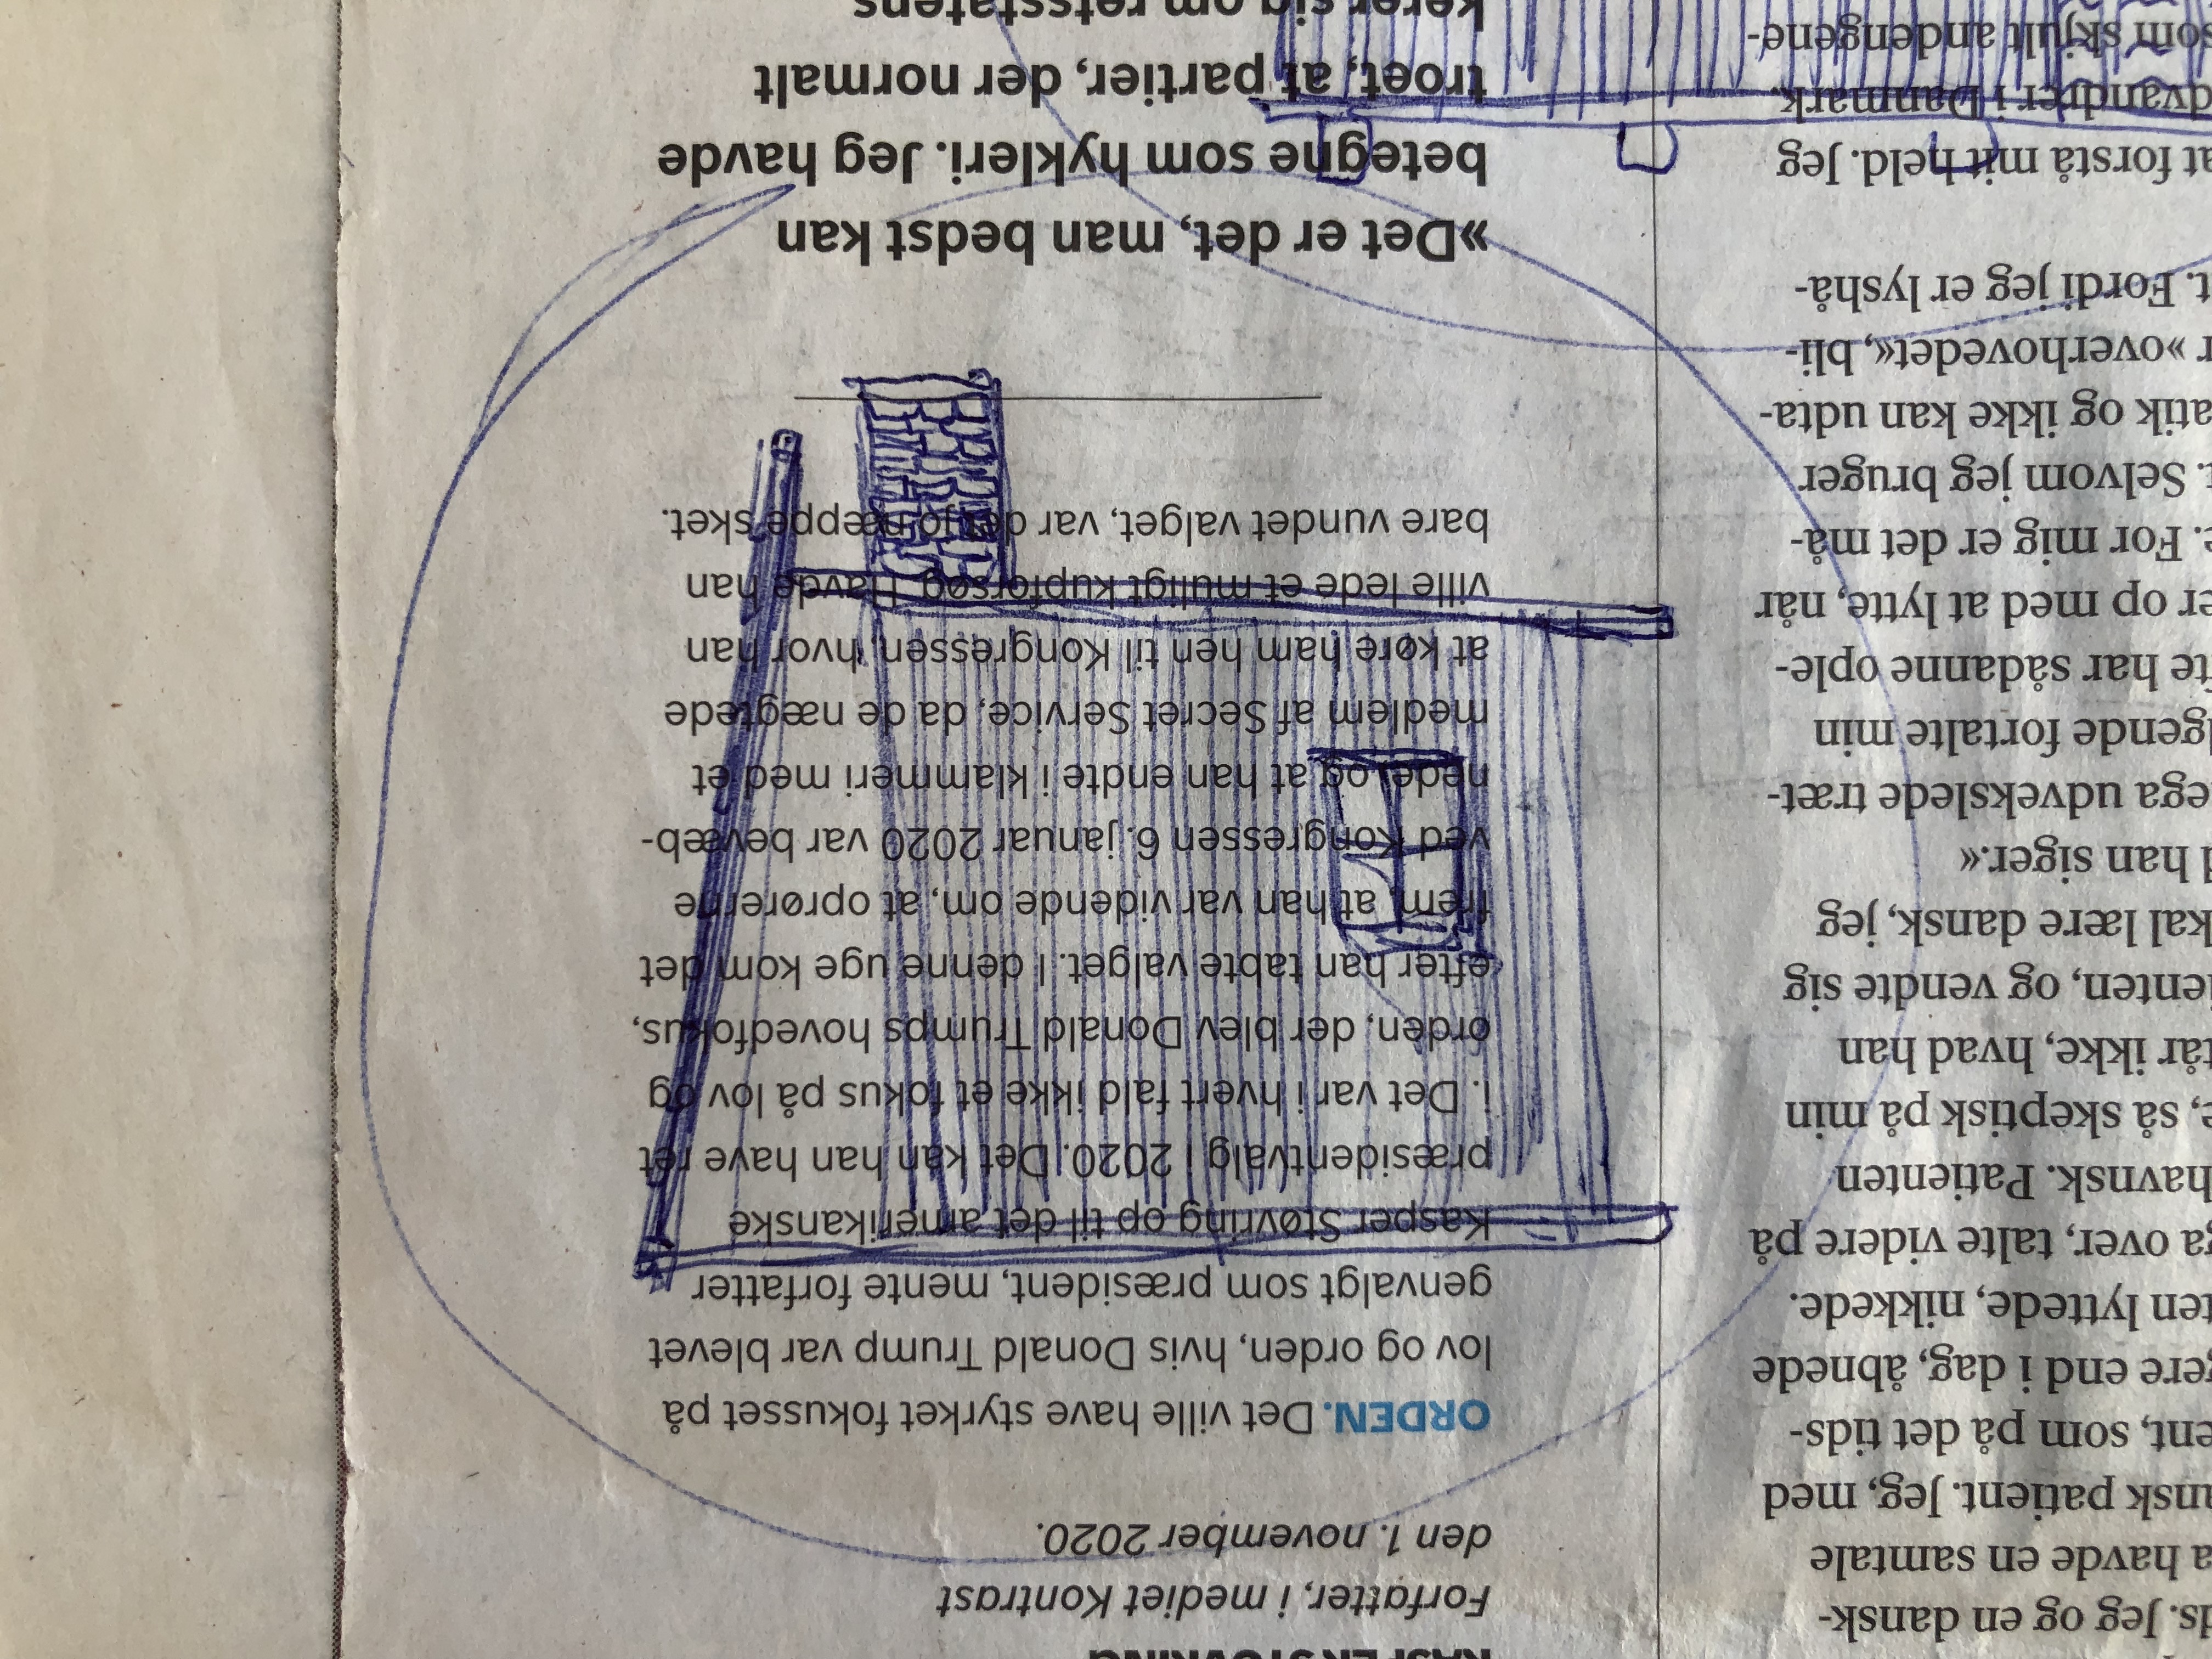 Jeg og en dansk-
havde en samtale
patient. Jeg, med
som på det tids-
end i dag, åbnede
lyttede, nikkede.
over, talte videre på
Patienten
så skeptisk på min
ikke, hvad han
og vendte sig
lære dansk, jeg
han siger.«
udvekslede træt-
fortalte min
har sådanne ople-
op med at lytte, når
For mig er det må-
Selvom jeg bruger
og ikke kan udta-
»overhovedet«, bli-
Fordi jeg er lyshå-
at forstå mit held. Jeg
i Danmark.
som skjult andengene-
KASPER STØVRING
Forfatter, i mediet Kontrast
den 1. november 2020.
ORDEN. Det ville have styrket fokusset på
lov og orden, hvis Donald Trump var blevet
genvalgt som præsident, mente forfatter
Kasper Støvring op til det amerikanske
præsidentvalg i 2020. Det kan han have ret
i. Det var i hvert fald ikke et fokus på lov og
orden, der blev Donald Trumps hovedfokus,
efter han tabte valget. I denne uge kom det
frem, at han var vidende om, at oprørerne
ved Kongressen 6. januar 2020 var bevæb-
nede, og at han endte i klammeri med et
medlem af Secret Service, da de nægtede
at køre ham hen til Kongressen, hvor han
ville lede et muligt kupforsøg. Havde han
bare vundet valget, var det jo næppe sket.
»Det er det, man bedst kan
betegne som hykleri. Jeg havde
troet, at partier, der normalt
kerer sig om retsstatens